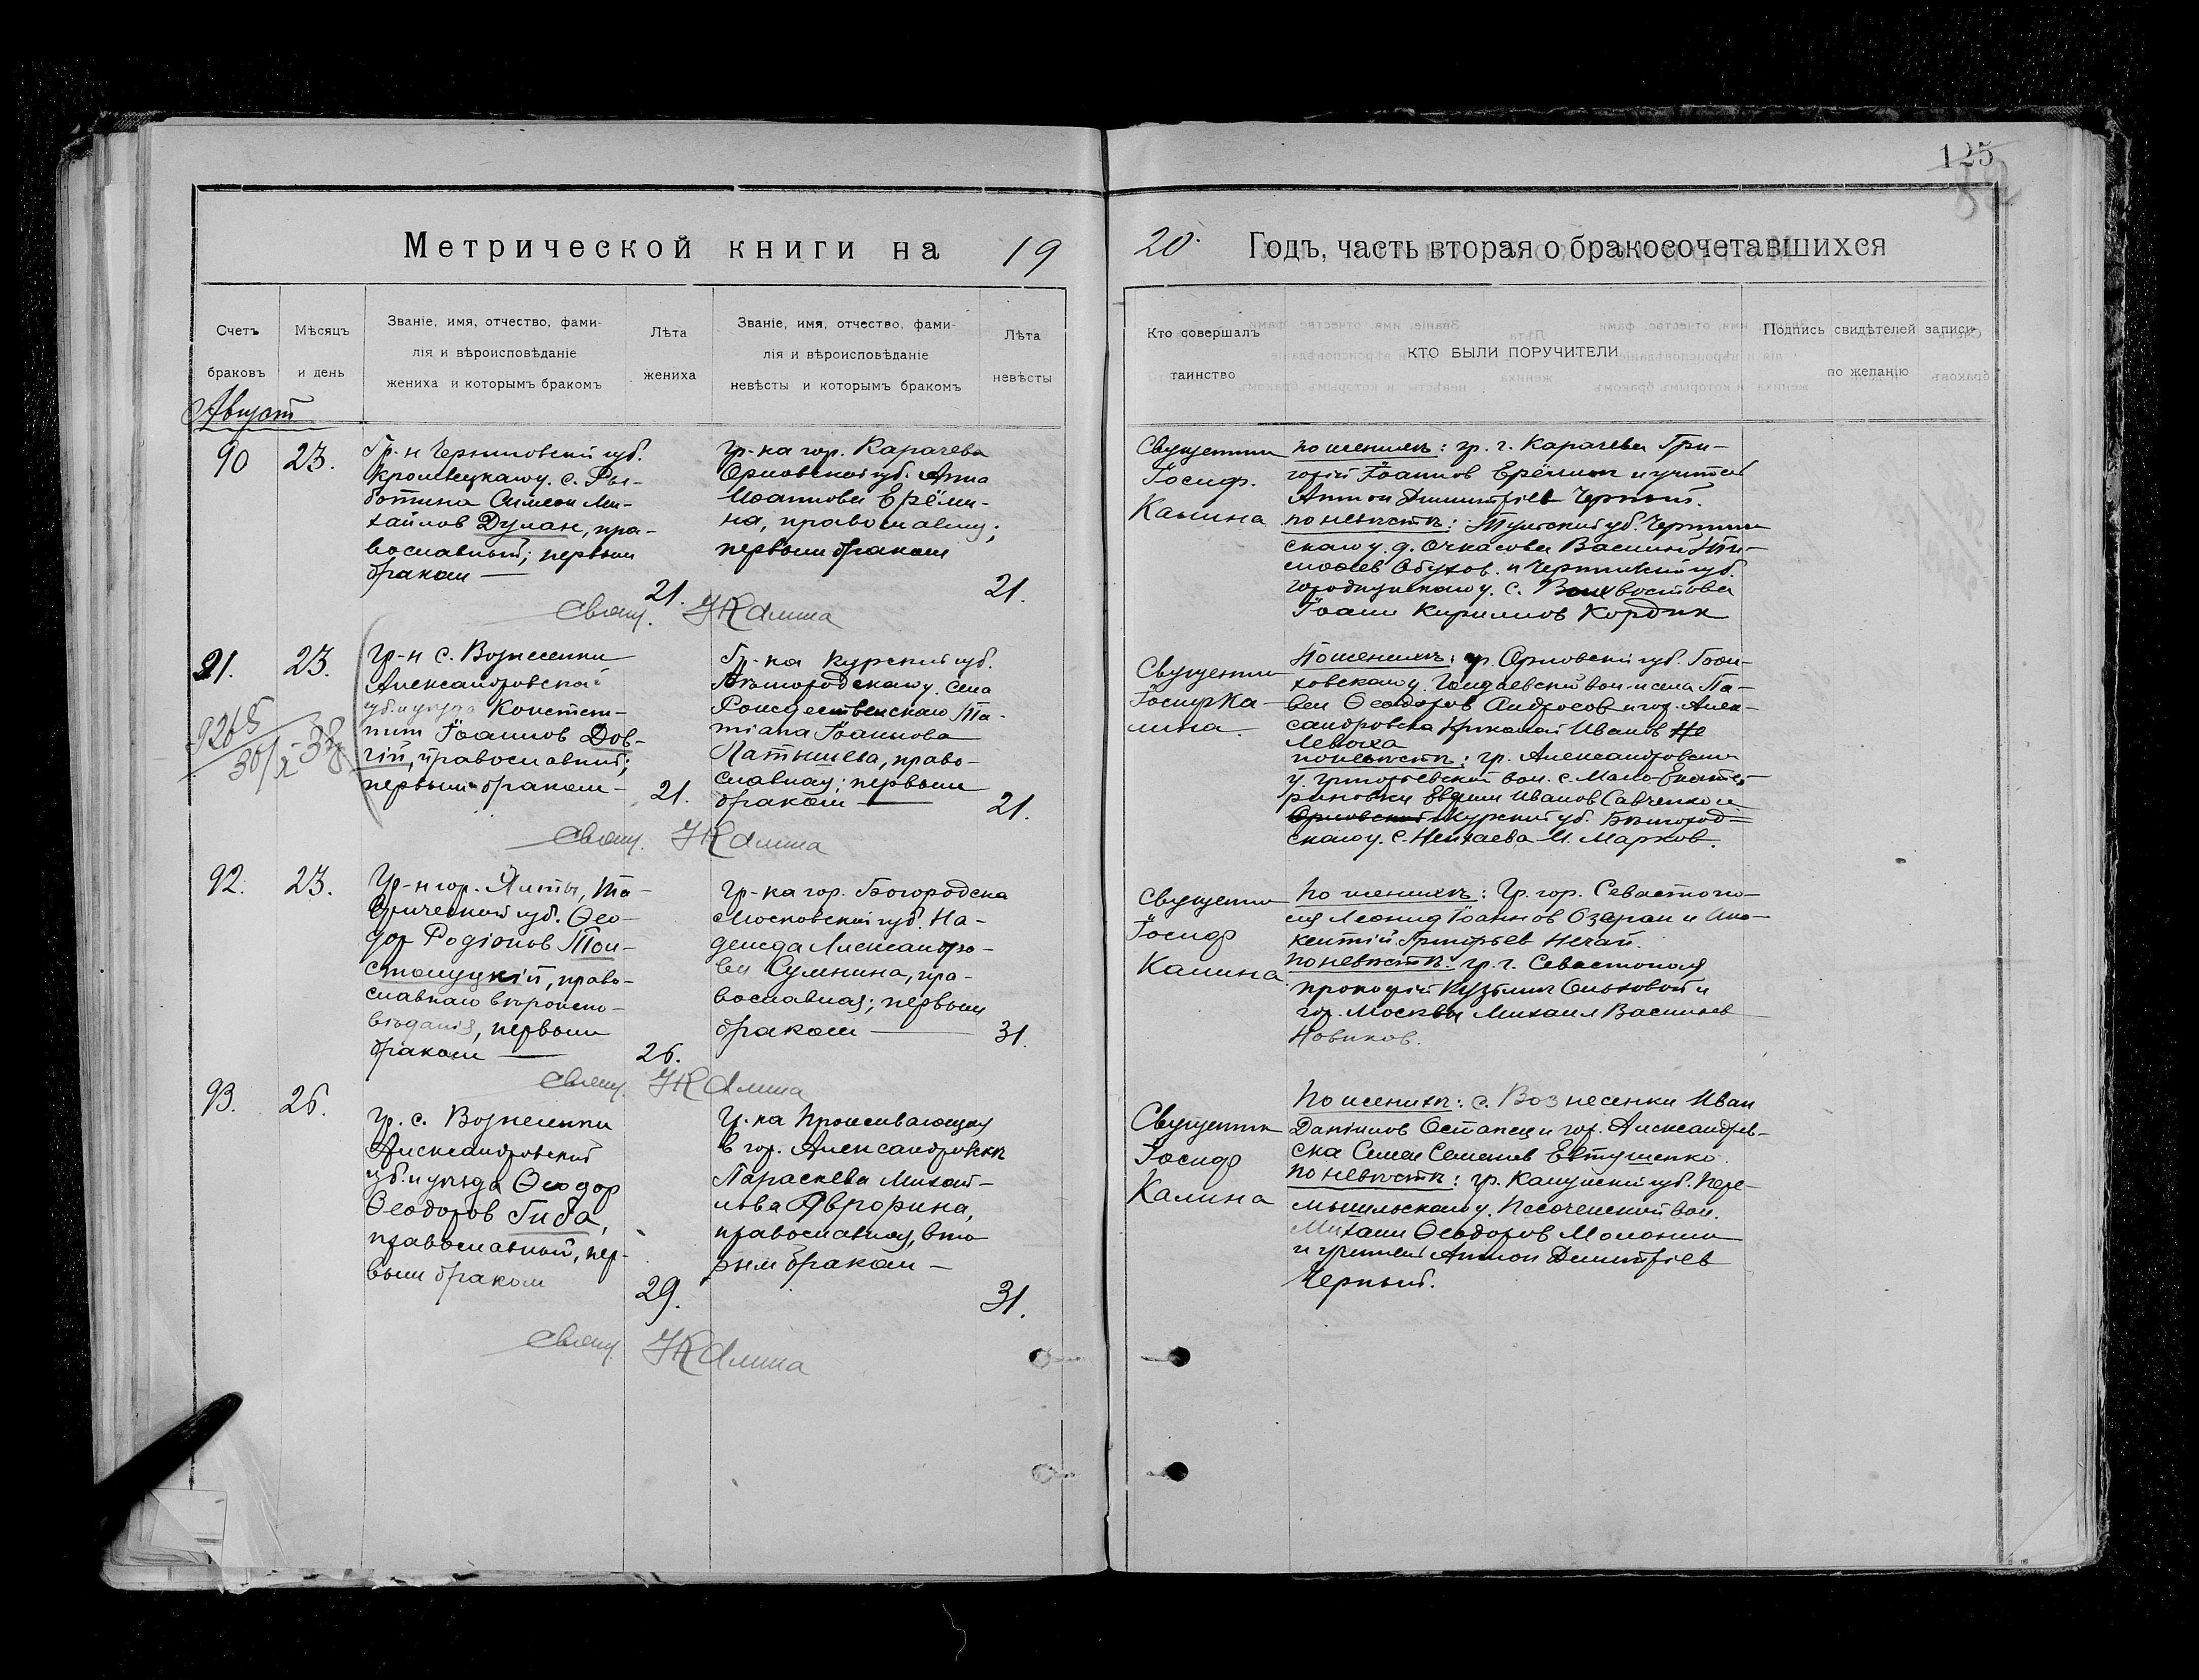 125
82
Метрической книги на 19
20. Годъ, часть вторая о бракосочетавшихся
Счетъ браковъ
Мѣсяцъ и день
Званіе, имя, отчество, фами-
лія и вѣроисповѣданіе
жениха и которымъ бракомъ
Лѣта жениха
Званіе, имя, отчество, фами-
лія и вѣроисповѣданіе
невѣсты и которымъ бракомъ
Лѣта невѣсты
Кто совершалъ таинство
КТО БЫЛИ ПОРУЧИТЕЛИ
Подпись свидѣтелей записи по желанію
Август
90 23.
Гр-н Черниговской губ.
Кролевецкаго у. с. Ры-
ботина Симеон Ми-
хайлов Дулан, пра-
вославный; первым
браком —
21.
Гр-ка гор. Карачева
Орловской губ. Анна
Иоаннова Ерёми-
на, православ;
первым браком
21.
Священник
Іосиф
Калина
по женихѣ: гр. г. Карачева Гри-
горій Іоаннов Ерёмин и учител
Антон Димитріев Черный.
по невѣстѣ: Тульской губ. Чернин
скаго у. д. Очкасова Василій Ти-
мофеев Обухов. и Черниговской губ.
Городнянскаго у. с. хвостова
Іоанн Кириллов Кордик
Свящ. І Калина
91. 23.
Гр-н с. Вознесенки
Александровской
губ. и уѣзда Констан-
тин Іоаннов Дов-
гій, православный;
первым браком —
21.
Гр-ка Курской губ.
Бѣлгородскаго у. села
Рождественскаго Та-
тіана Іоаннова
Латышева, право-
славная; первым
браком —
21.
Священник
Іосиф Ка-
лина.
По женихѣ: гр. Орловской губ.
ховскаго у. вол. и села Па-
вел Ѳеодоров Андросов и гор. Алек-
сандровска Николай Иванов Не
Левоха
по невѣстѣ: гр. Александровскаго
у. Григорьевской вол. с. Мало-Екате-
риновки Евфим Иванов Савченко и
Орловской Курской губ. Бѣлгород-
скаго у. с. Нечаева И. Марков.
9265
Свящ. І Калина
92. 23.
Гр-н гор. Ялты, Та-
врической губ. Ѳео-
дор Родіонов Тол-
столуцкій, право-
славнаго вѣроиспо-
вѣданія, первым
браком —
26.
Гр-ка гор. Богородска
Московской губ. На-
дежда Александро-
ва Сумнина, пра-
вославная; первым
браком —
31.
Священник
Іосиф
Калина
По женихѣ: Гр. гор. Севастопо-
ля Леонид Іоаннов Озеран и Ино-
кентій Григорьев Нечай.
По невѣстѣ: гр. г. Севастополя
Прокофій Кузьмич Ольховой и
гор. Москвы Михаил Васильев
Новиков.
Свящ. І Калина
93. 26.
Гр. с. Вознесенки
Александровской
губ. и уѣзда Ѳеодор
Ѳеодоров Гиба,
православный, пер-
вым браком
29.
Гр-ка проживающая
в гор. Александровскѣ
Параскева Михай-
лова Аврорина,
православная, вто
рым браком —
31.
Священник
Іосиф
Калина
По женихѣ: с. Вознесенки Иван
Даніилов Остапец и гор. Александров-
ска Семен Семенов Евтушенко.
По невѣстѣ: гр. Калужской губ. Пере-
мышльскаго у. Песоченской вол.
Михаил Ѳеодоров Молокин
и учитель Антон Димитріев
Черный.
Свящ. І Калина